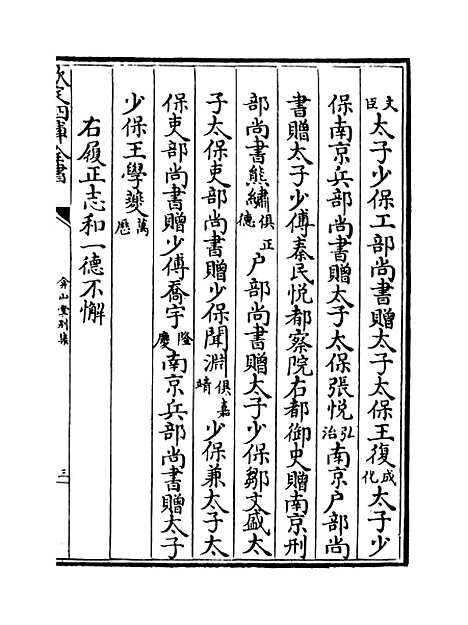 文臣太子少保工部尚書贈太子太保王復成化太子少
保南京兵部尚書贈太子太保張悅弘治南京户部尚
書贈太子少傅秦民悅都察院右都御史贈南京刑
部尚書熊繡俱正德户部尚書贈太子少保鄒文盛太
子太保吏部尚書贈少保聞淵俱嘉靖少保兼太子太
保吏部尚書贈少傅喬宇隆慶南京兵部尚書贈太子
少保王學夔萬厯
右履正志和一德不懈
欽定四庫全書
弇山堂别集
三